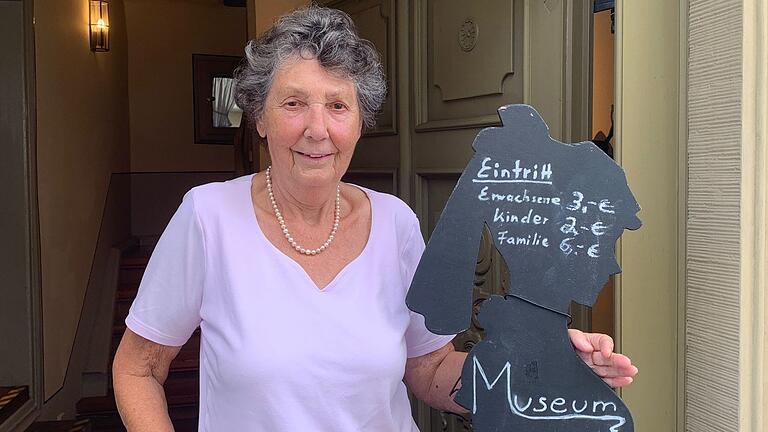 Eintritt
Erwachsene 3,-€
Kinder 2,-€
Familie 6,-€
Museum